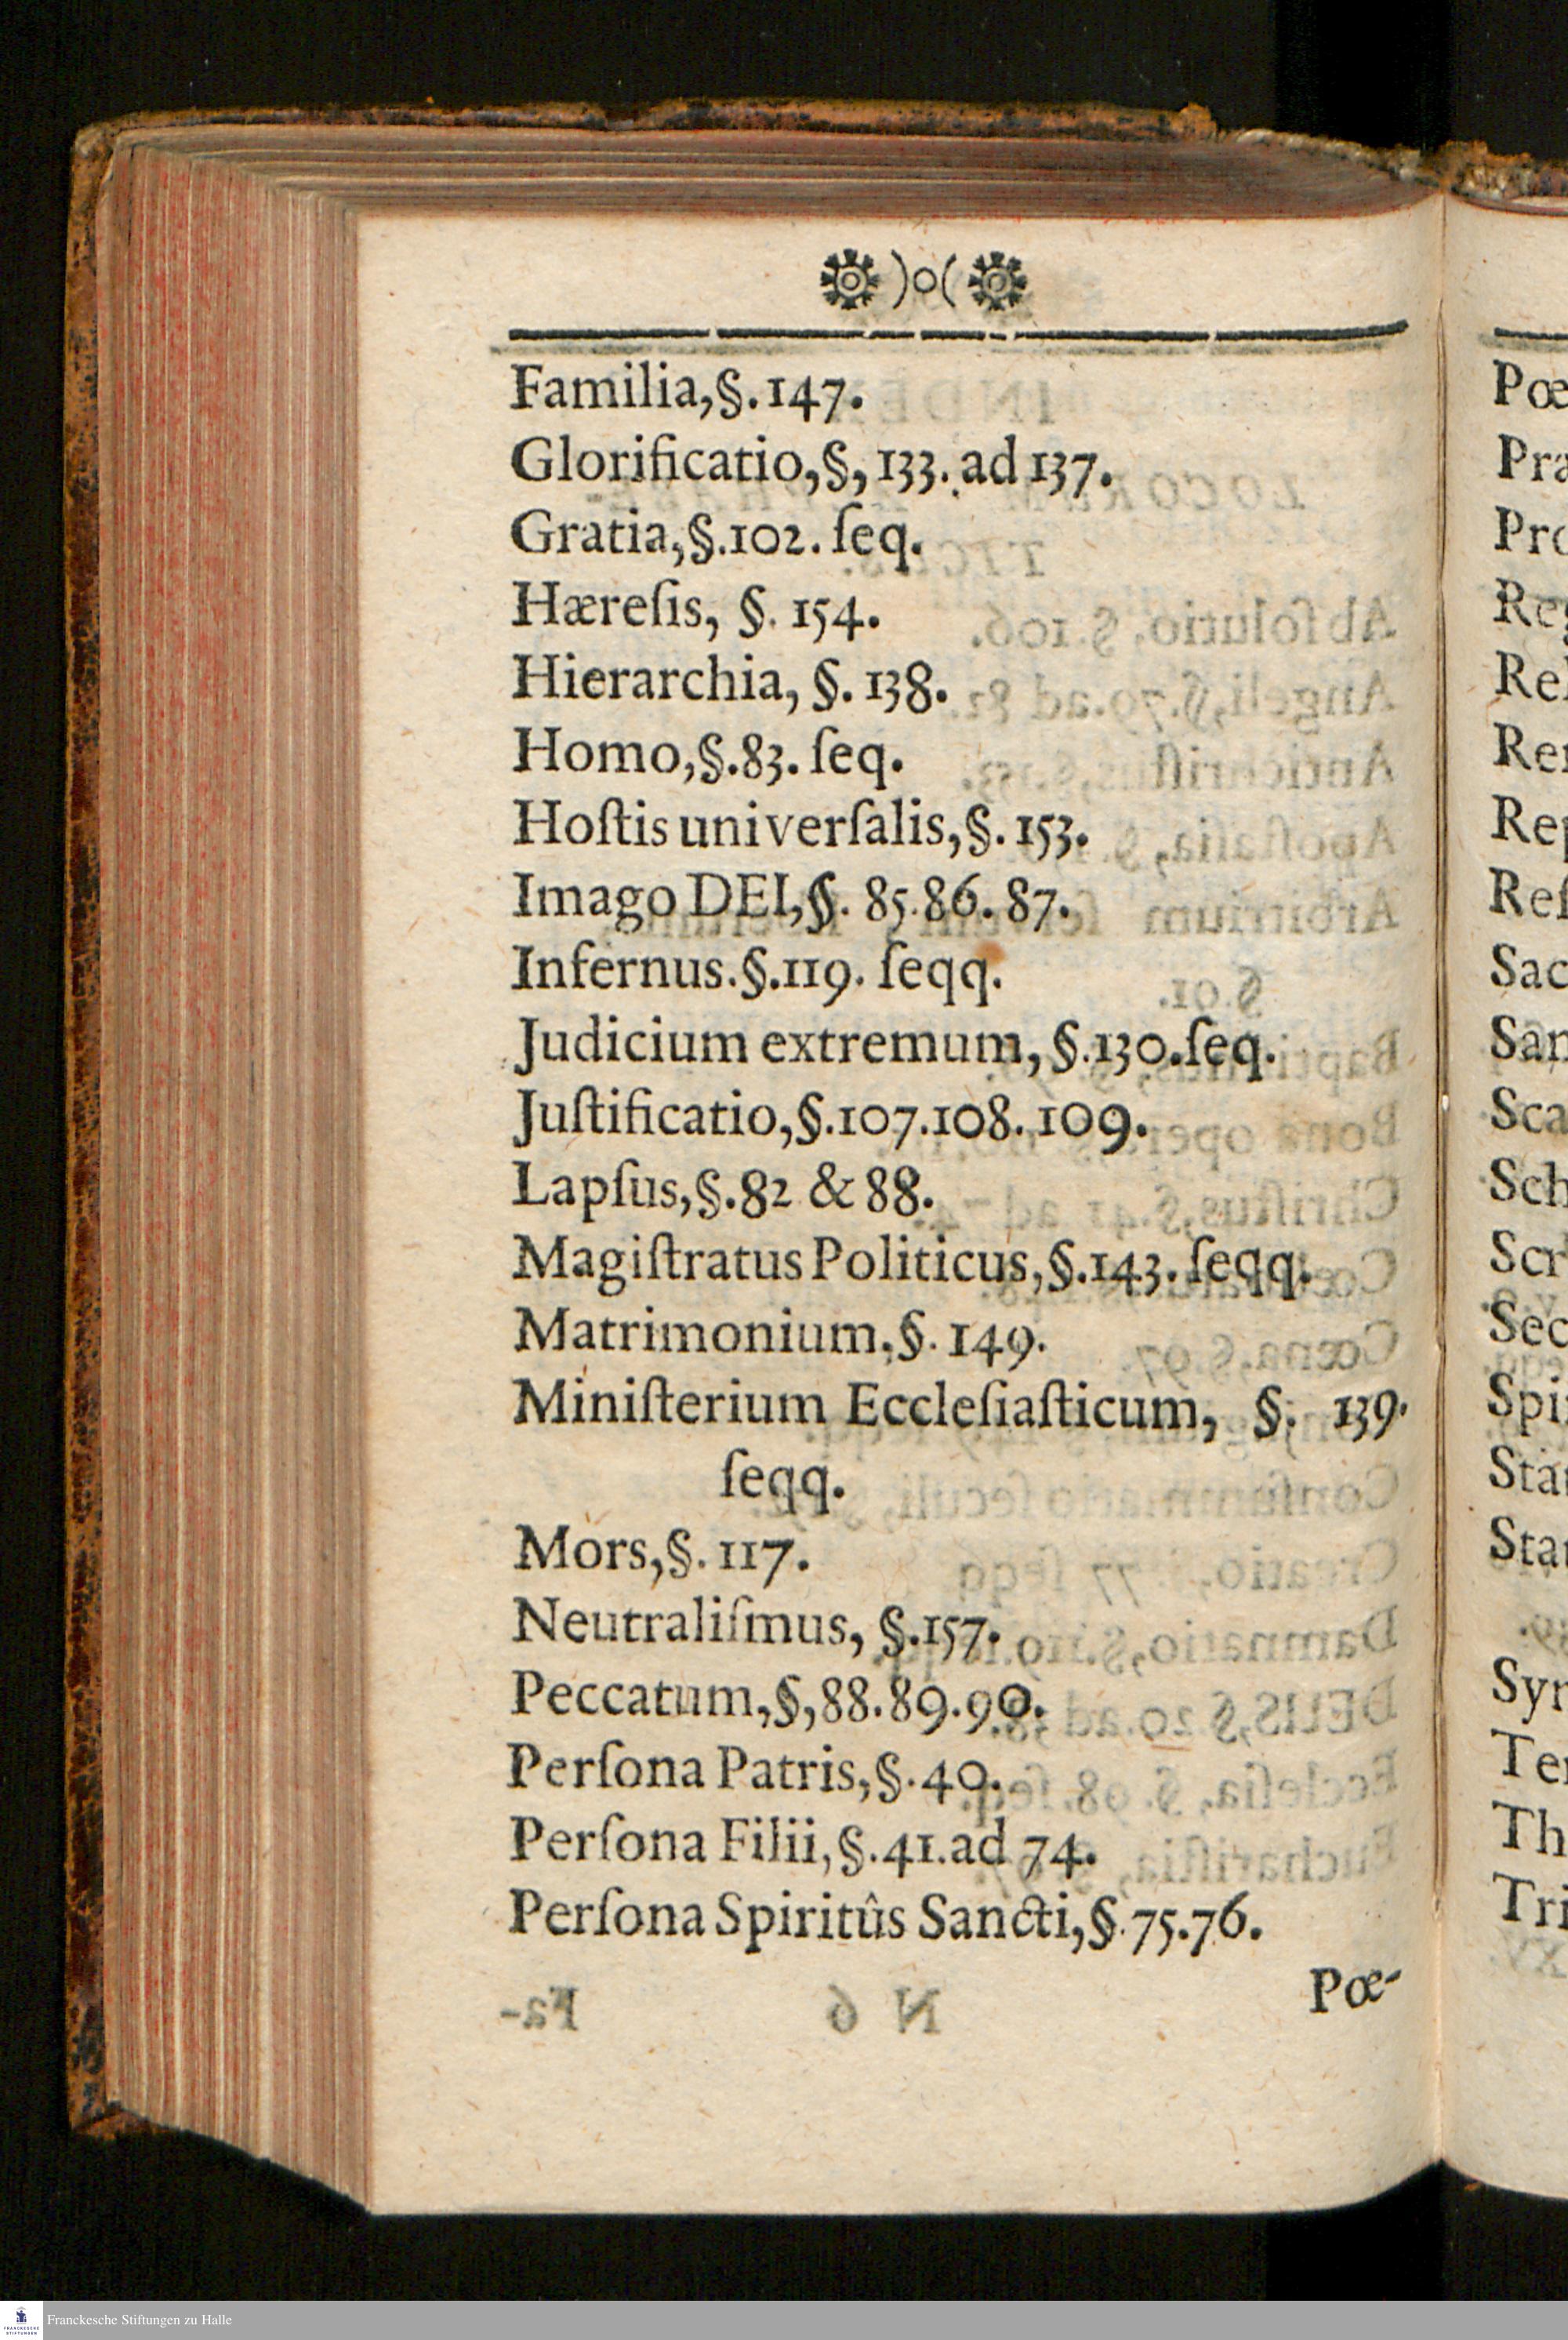 )o(
Familia,§.147.
Glorificatio,§, 133. ad 137.
Gratia,§.102. ſeq.
Hæreſis, §. 154.
Hierarchia, §. 138.
Homo,§.83. ſeq.
Hoſtis univerſalis,§. 153.
Imago DEI,§. 85.86. 87.
Infernus.§.119. ſeqq.
Judicium extremum, §.130.ſeq.
Juſtificatio,§.107.108. 109.
Lapſus,§.82 & 88.
Magiſtratus Politicus,§.143. ſeqq.
Matrimonium,§. 149.
Miniſterium Eccleſiaſticum, §. 139.
ſeqq.
Mors,§. 117.
Neutraliſmus, §.157.
Peccatum,§,88.89.90.
Perſona Patris,§.40.
Perſona Filii,§.41.ad 74.
Perſona Spiritûs Sancti,§.75.76.
Pœ-
Pœ
Pro
Sac
Sca
Sch
Sec
Th
Tri
Franckesche Stiftungen zu Halle
FRANCKESCHE
STIFTUNGEN